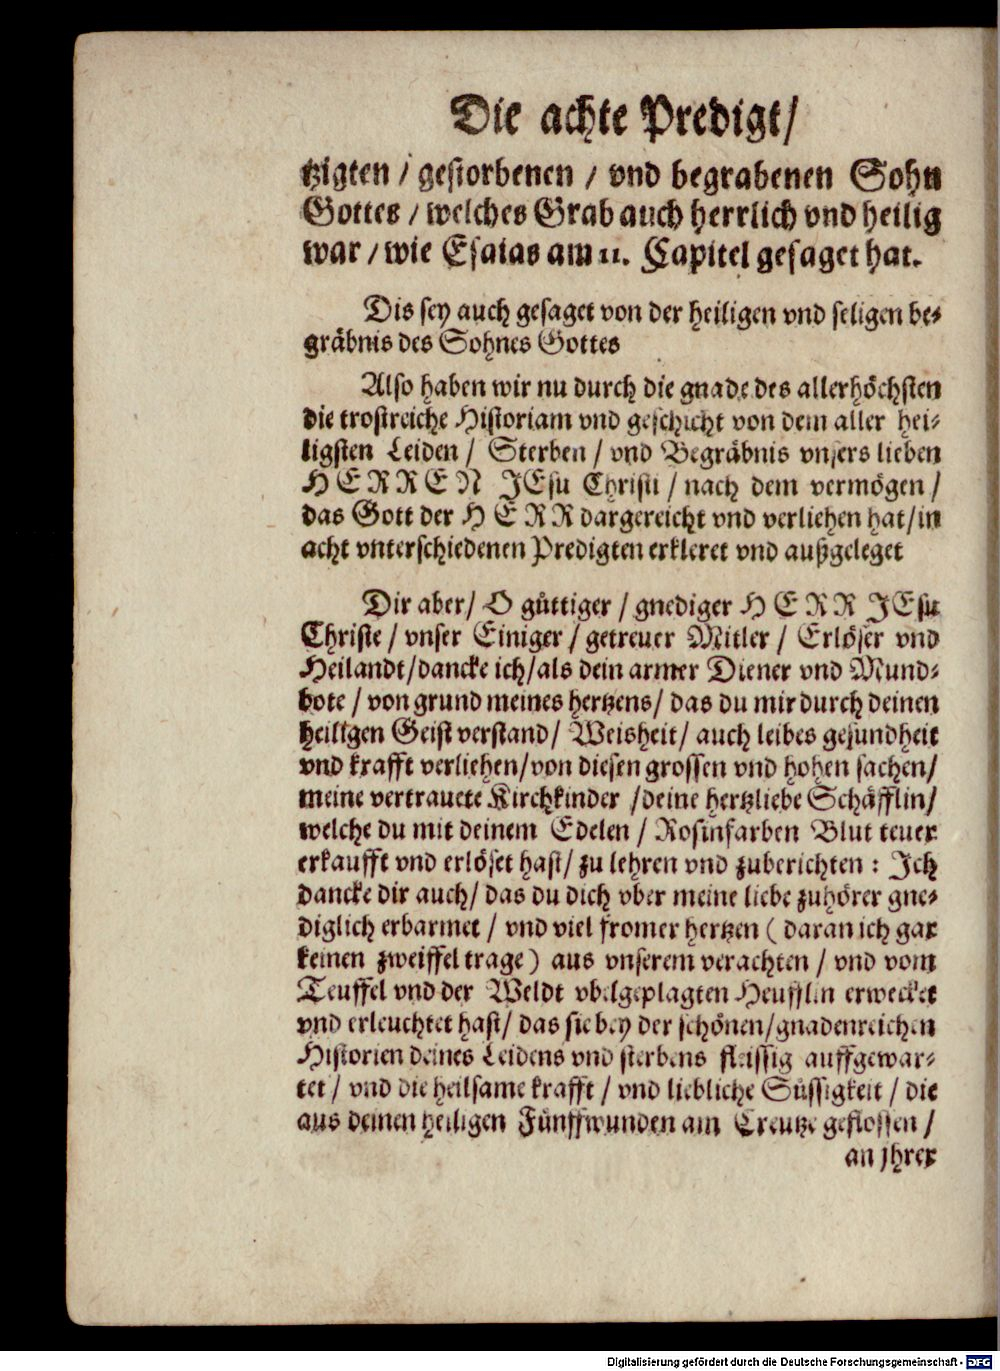 Die achte Predigt/
tzigten / gestorbenen / vnd begrabenen Sohn
Gottes / welches Grab auch herrlich vnd heilig
war / wie Esaias am 11. Capitel gesaget hat.
Dis sey auch gesaget von der heiligen vnd seligen be-
gräbnis des Sohnes Gottes
Also haben wir nu durch die gnade des allerhöchsten
die trostreiche Historiam vnd geschicht von dem aller hei-
ligsten Leiden / Sterben / vnd Begräbnis vnsers lieben
HERREN JEsu Christi / nach dem vermögen /
das Gott der HERR dargereicht vnd verliehen hat/in
acht vnterschiedenen Predigten erkleret vnd außgeleget
Dir aber/ O gůttiger / gnediger HERR JEsu
Christe / vnser Einiger / getreuer Mitler / Erlöser vnd
Heilandt/dancke ich/als dein armer Diener vnd Mund-
bote / von grund meines hertzens/ das du mir durch deinen
heiligen Geist verstand/ Weisheit/ auch leibes gesundheit
vnd krafft verliehen/von diesen grossen vnd hohen sachen/
meine vertrauete Kirchkinder /deine hertzliebe Schäfflin/
welche du mit deinem Edelen / Rosinfarben Blut teuer
erkaufft vnd erlöset hast/ zu lehren vnd zuberichten : Ich
dancke dir auch/ das du dich vber meine liebe zuhörer gne-
diglich erbarmet / vnd viel fromer hertzen ( daran ich gar
keinen zweiffel trage ) aus vnserem verachten / vnd vom
Teuffel vnd der Weldt vbelgeplagten Heufflin erwecket
vnd erleuchtet hast/ das sie bey der schönen/gnadenreichen
Historien deines Leidens vnd sterbens fleissig auffgewar-
tet / vnd die heilsame krafft / vnd liebliche Süssigkeit / die
aus deinen heiligen Fünffwunden am Creutze geflossen /
an jhrer
Digitalisierung gefördert durch die Deutsche Forschungsgemeinschaft - DFG